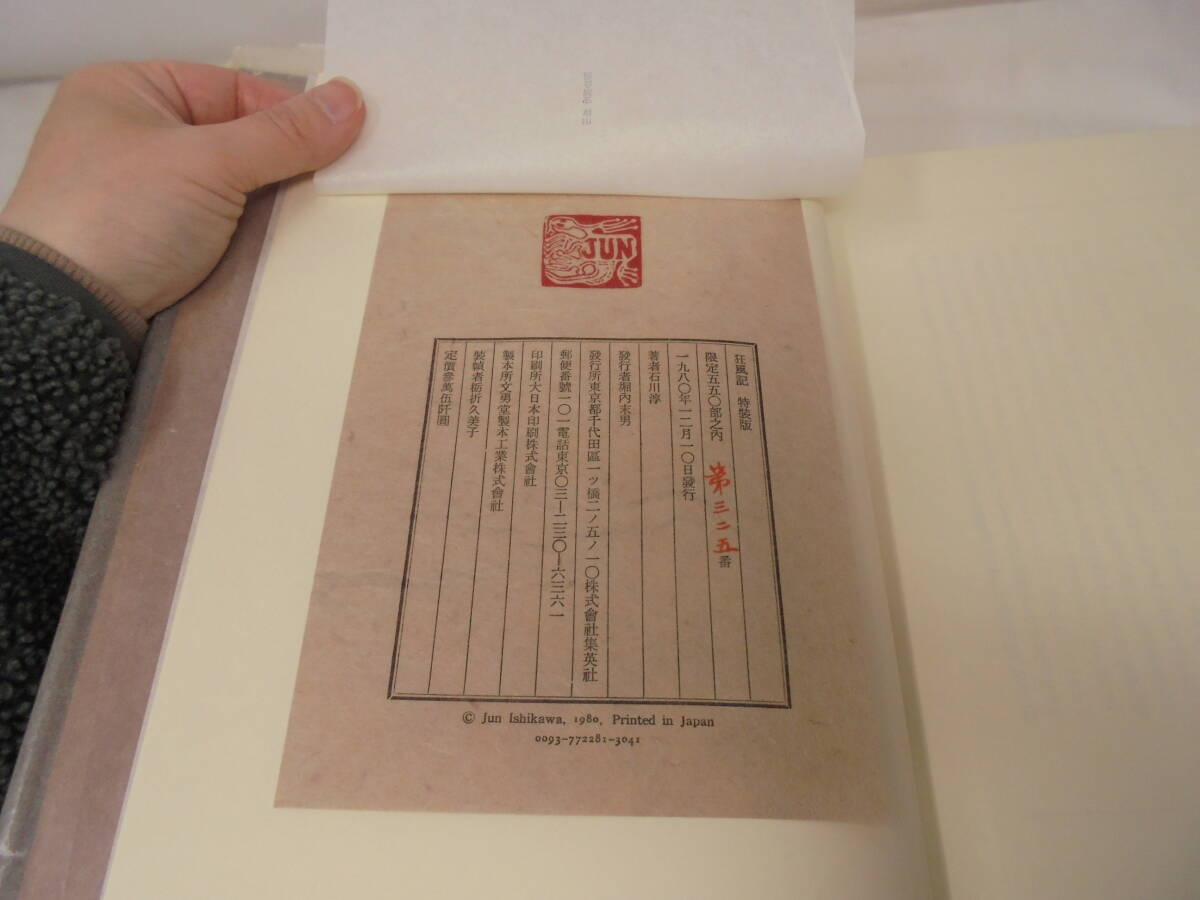 JUN
狂風記 特裝版
限定五五〇部之內 第三二五番
一九八〇年一二月一〇日發行
著者石川淳
發行者堀內末男
發行所東京都千代田區一ッ橋二ノ五ノ一〇株式會社集英社
郵便番號一〇一電話東京〇三―二三〇―六三六一
印刷所大日本印刷株式會社
製本所文勇堂製本工業株式會社
裝幀者栃折久美子
定價參萬伍阡圓
© Jun Ishikawa, 1980, Printed in Japan
0093-772281-3041